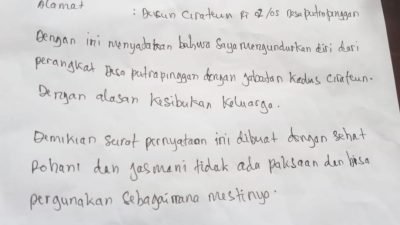 Alamat : Dusun Cirateun Rt 02/05 Desa putrapinggan
Dengan ini menyatakan bahwa saya mengundurkan diri dari
perangkat Desa putrapinggan dengan jabatan Kadus Cirateun.
Dengan alasan kesibukan keluarga.
Demikian surat pernyataan ini dibuat dengan sehat
Rohani dan jasmani tidak ada paksaan dan bisa
pergunakan sebagaimana mestinya.